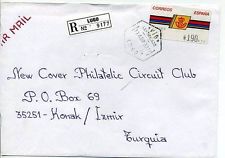 AIR MAIL
R LUGO
Nº 9177
CORREOS ESPAÑA
New Cover Philatelic Circuit Club
P.O. Box 69
35251- Konak / Izmir
Turquia